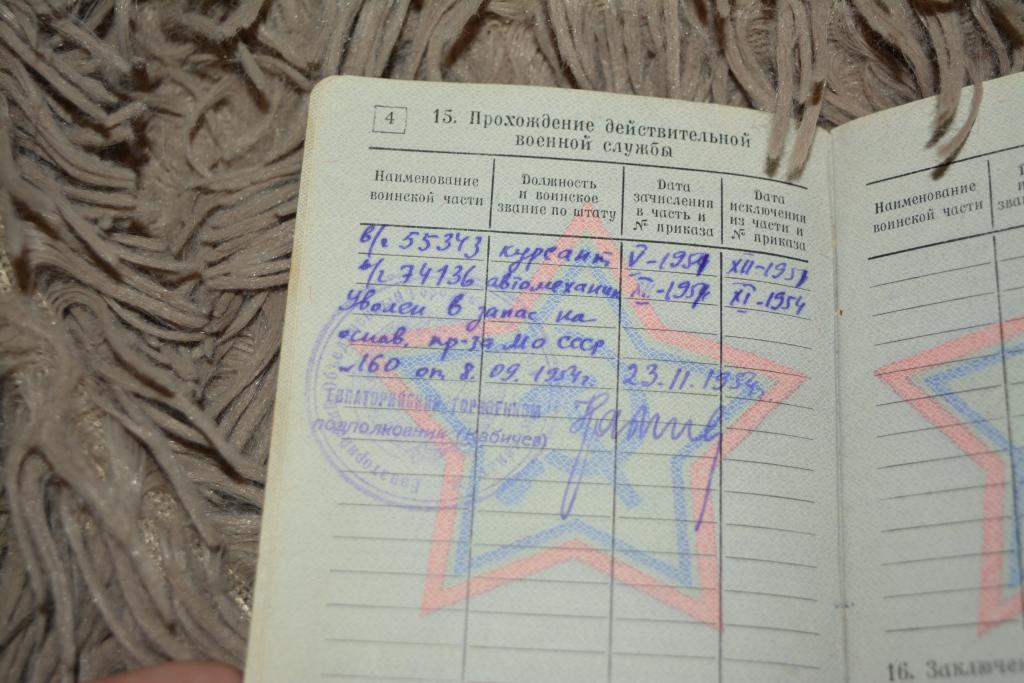 4
15. Прохождение действительной
военной службы
Наименование
воинской части
Должность
и воинское
звание по штату
Дата
зачисления
в часть и
№ приказа
Дата
исключения
из части и
№ приказа
в/ч 55343 курсант V-1951 XII-1951
в/ч 74136 автомеханик XII-1951 XI-1954
Уволен в запас на
основ. пр-за МО СССР
№160 от 8.09.1954г. 23.11.1954г.
ЕВПАТОРИЙСКИЙ ГОРВОЕНКОМ
подполковник (Кабичев)
Наименование
воинской части
16. Заключен